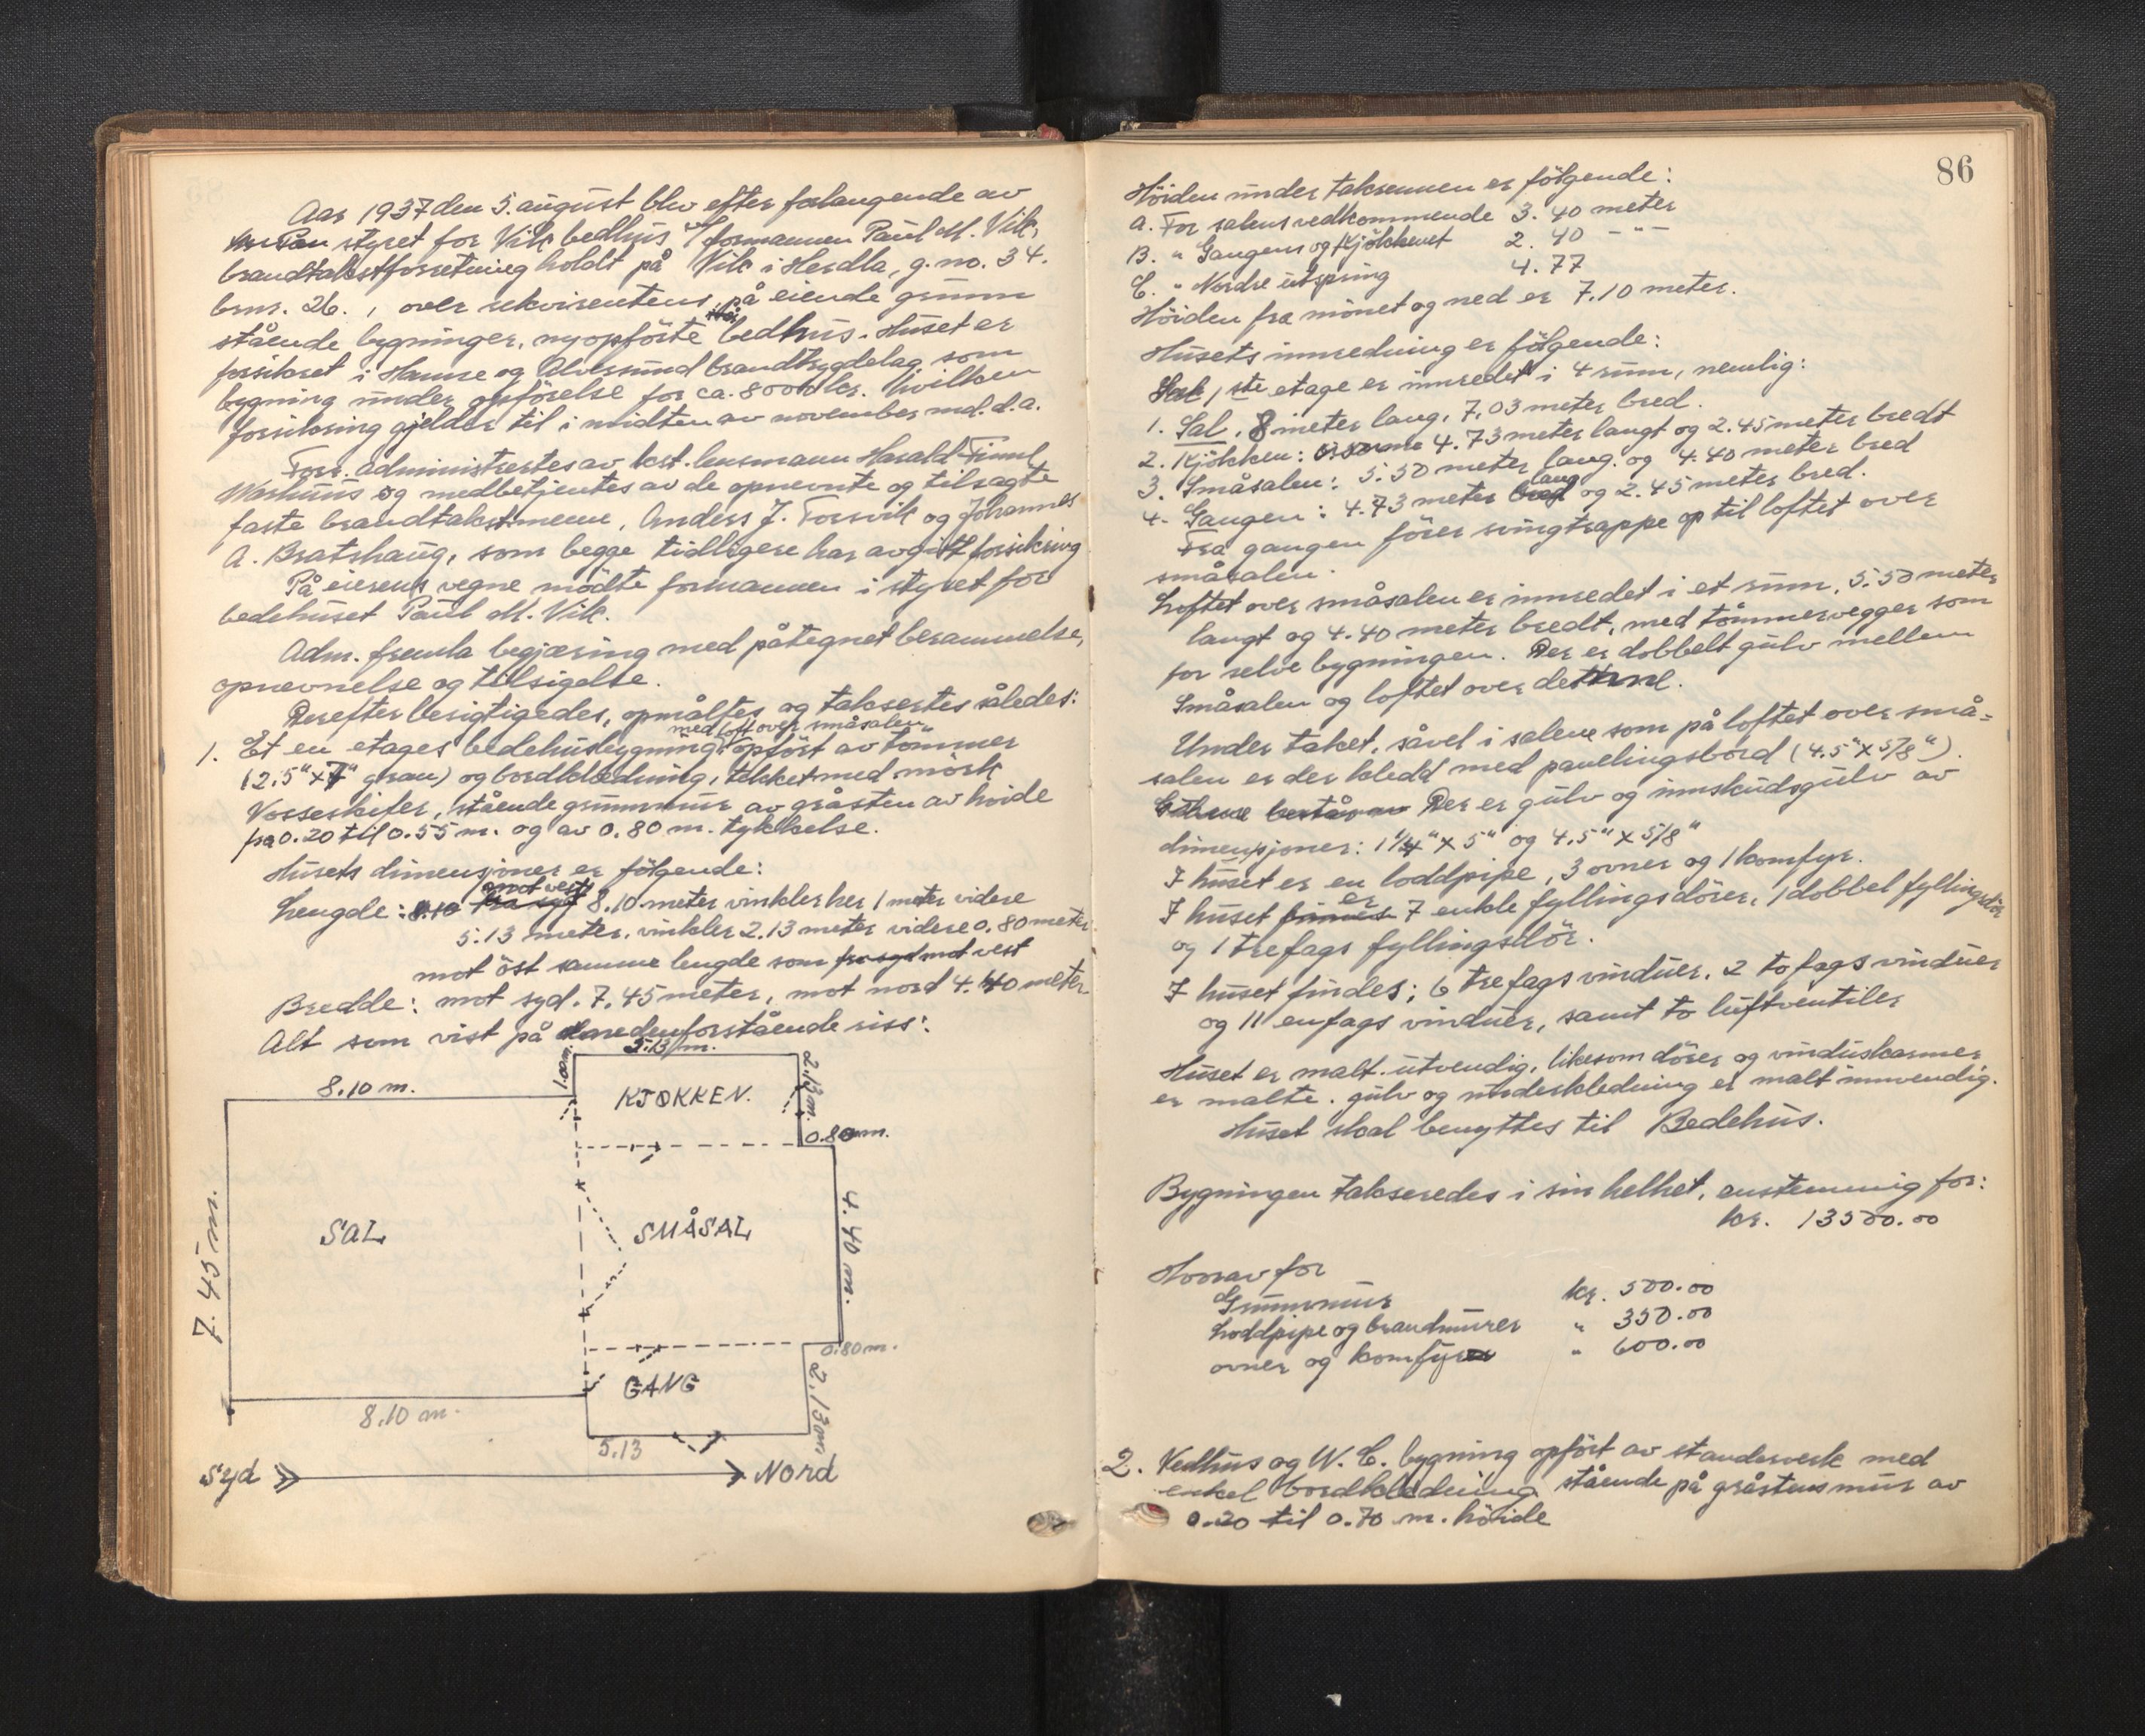 Aar 1937 den 5. august blev efter forlangende av
styret for Vik bedhus ved formannen Paul M. Vik,
brandtakstforretning holdt på Vik i Herdla, g.no. 34.
brnr. 26., over rekvirentens, på eiende grunn
stående bygninger, nyopførte bedhus. Huset er
forsikret i Hamre og Alversund brandtrygdelag som
bygning under opførelse for ca. 8000 kr. hvilken
forsikring gjelder til i midten av november md. d.a.
Forr. administrertes av kst. lensmann Harald Finne
og medbetjentes av de opnevnte og tilsagte
faste brandtakstmenn, Anders J. Forsvik og Johannes
A. Bratshaug, som begge tidligere har avgitt forsikring
På eierens vegne mødte formannen i styret for
bedehuset Paul M. Vik.
Adm. fremla begjæring med påtegnet berammelse,
opnevnelse og tilsigelse.
Derefter besigtigedes, opmåltes og taksertes således:
med loft over småsalen
1. Et en etages bedehusbygning opført av tømmer
(2.5" x 7" gran) og bordklædning, tekket med mørk
Vosseskifer, stående grunnmur av gråsten av høide
fra 0.20 til 0.55 m. og av 0.80 m. tykkelse.
Husets dimensjoner er følgende:
mot vest
Lengde: 8.10 fra syd 8.10 meter vinkler her 1 meter videre
5.13 meter, vinkler 2.13 meter videre 0.80 meter
mot øst samme lengde som fra syd mot vest
Bredde: mot syd. 7.45 meter, mot nord 4.40 meter
Alt som vist på nedenforstående riss:
5.13 m.
1.00 m.
2.13 m.
8.10 m.
KJØKKEN.
0.80 m.
7.45 m.
SAL
SMÅSAL
4.40 m.
0.80 m.
GANG
2.13 m
8.10 m.
5.13
Syd
Nord
86
Høiden under taksennen er følgende:
A. For salens vedkommende 3.40 meter
B. " Gangens og Kjøkkenet 2.40 - " -
C. " Nordre utspring 4.77
Høiden fra mønet og ned er 7.10 meter.
Husets innredning er følgende:
1ste etage er innredet i 4 rum, nemlig:
1. Sal, 8 meter lang, 7,03 meter bred.
2. Kjøkken: 4.73 meter langt og 2.45 meter bredt
3. Småsalen: 5.50 meter lang. og 4.40 meter bred
lang
4. Gangen: 4.73 meter bred og 2.45 meter bred.
Fra gangen fører svingtrappe op til loftet over
småsalen.
Loftet over småsalen er innredet i et rum, 5.50 meter
langt og 4.40 meter bredt, med tømmervegger som
for selve bygningen. Der er dobbelt gulv mellem
Småsalen og loftet over denne.
Under taket, såvel i salene som på loftet over små-
salen er der kledd med panelingsbord (4.5" x 5/8").
Gulvene består av Der er gulv og innskudsgulv av
dimensjoner: 1 1/4" x 5" og 4.5" x 5/8"
I huset er en loddpipe, 3 ovner og 1 komfyr.
er
I huset finnes 7 enkle fyllingsdører, 1 dobbel fyllingsdør
og 1 trefags fyllingsdør.
I huset findes; 6 trefags vinduer, 2 tofags vinduer
og 11 enfags vinduer, samt to luftventiler
Huset er malt utvendig, likesom dører og vinduskarmer
er malte. gulv og underkledning er malt innvendig.
Huset skal benyttes til Bedehus.
Bygningen takseredes i sin helhet, enstemmig for:
kr. 13500.00
Horav for
Grunnmur kr. 500.00
Loddpipe og brandmurer " 350.00
ovner og komfyr " 600.00
2. Vedhus og W.C. bygning opført av standerverk med
enkel bordkledning stående på gråstensmur av
0.20 til 0.70 m. høide